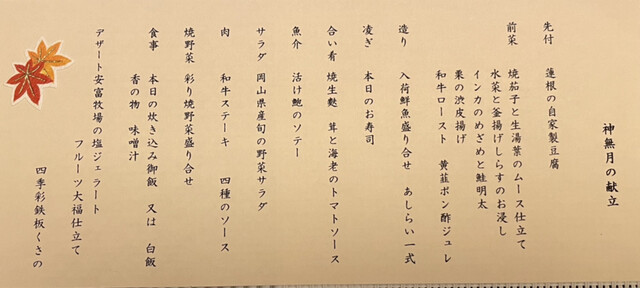 神無月の献立
先付 蓮根の自家製豆腐
前菜 焼茄子と生湯葉のムース仕立て
水菜と釜揚げしらすのお浸し
インカのめざめと鮭明太
栗の渋皮揚げ
和牛ロースト 黄韮ポン酢ジュレ
造り 入荷鮮魚盛り合せ あしらい一式
凌ぎ 本日のお寿司
合い肴 焼生麩 茸と海老のトマトソース
魚介 活け鮑のソテー
サラダ 岡山県産旬の野菜サラダ
肉 和牛ステーキ 四種のソース
焼野菜 彩り焼野菜盛り合せ
食事 本日の炊き込み御飯 又は 白飯
香の物 味噌汁
デザート 安富牧場の塩ジェラート
フルーツ大福仕立て
四季彩鉄板くさの